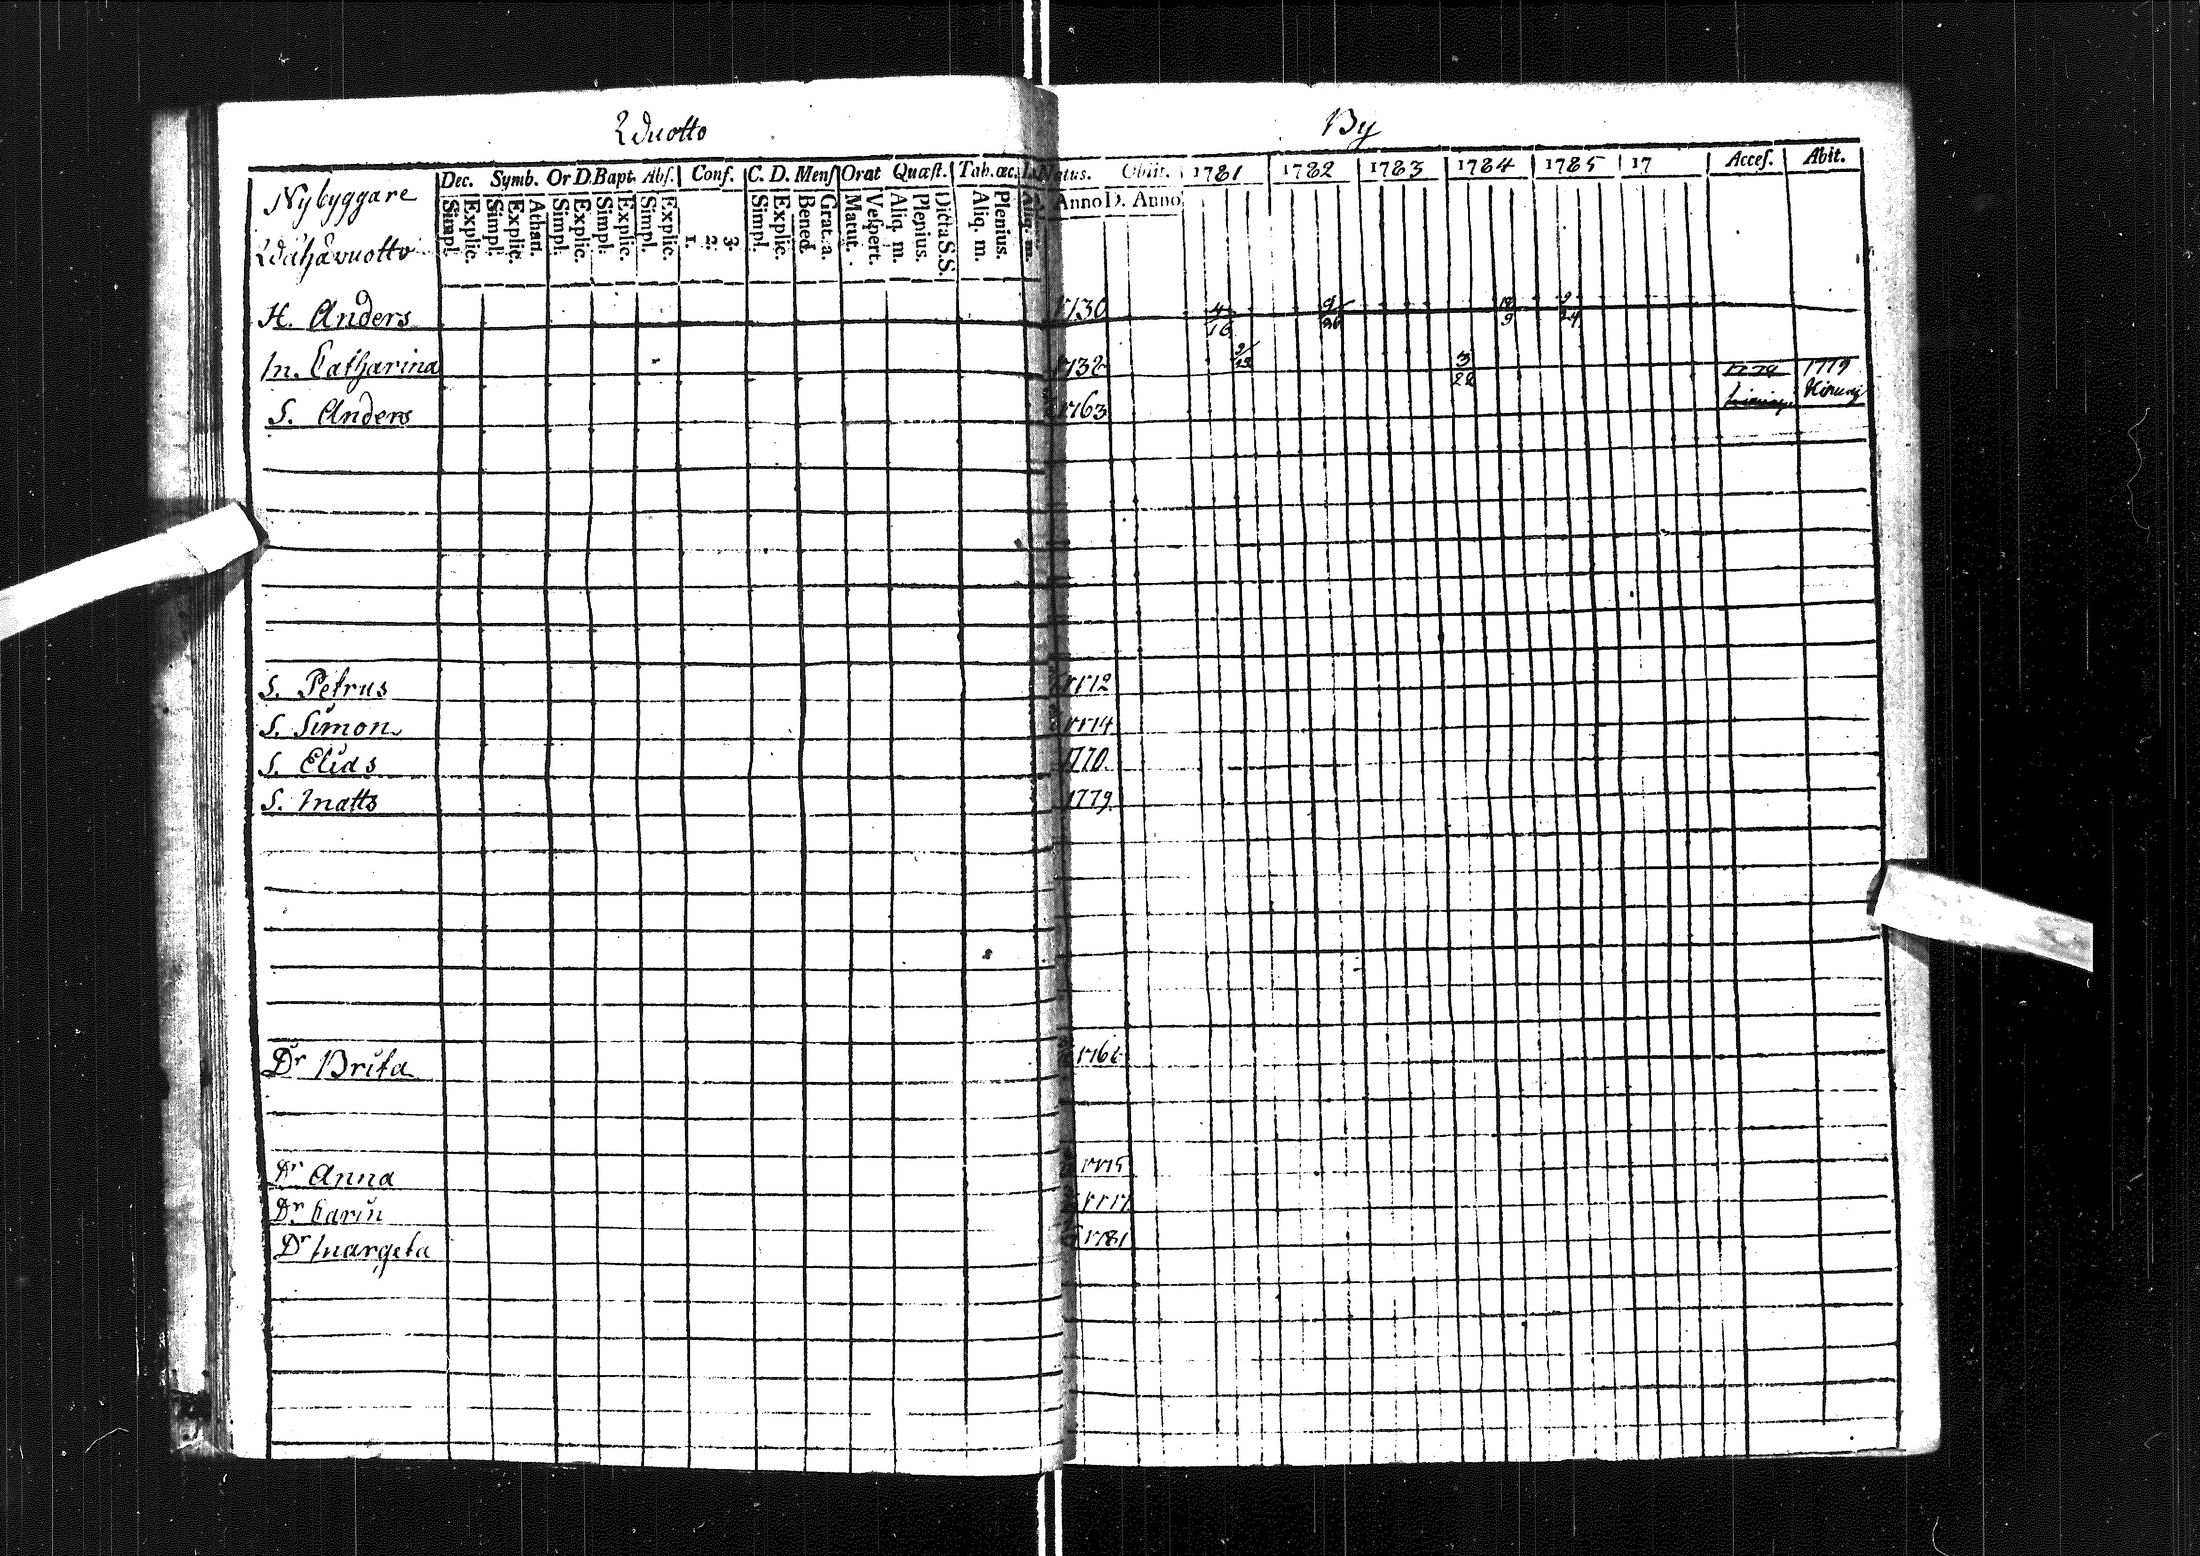 By
Dec. Symb. Or D. Bapt. Abs. Conf. C. D. Mens Orat Quæst. Tab. œc. Natus. Obiit. 1781 1782 1783 1784 1785 17 Acces. Abit.
Simpl. Explic. Simpl. Explic. Athan. Simpl. Explic. Simpl. Explic. Simpl. Explic. 1. 2. 3. Simpl. Explic. Bened. Grat. a. Matut. Vespert. Aliq. m. Plenius. Dicta S.S. Aliq. m. Plenius. Aliq. m. Anno D. Anno
Nybyggare
H. Anders 1730 4/16 9/20 9/24
M. Catharina 1732 3/22
S. Anders 1763 1779
S. Petrus 1772
S. Simon 1774
S. Elias 1770
S. Matts 1779
Dr Brita
Dr Anna 1775
Dr Carin 1777
Dr Margeta 1781